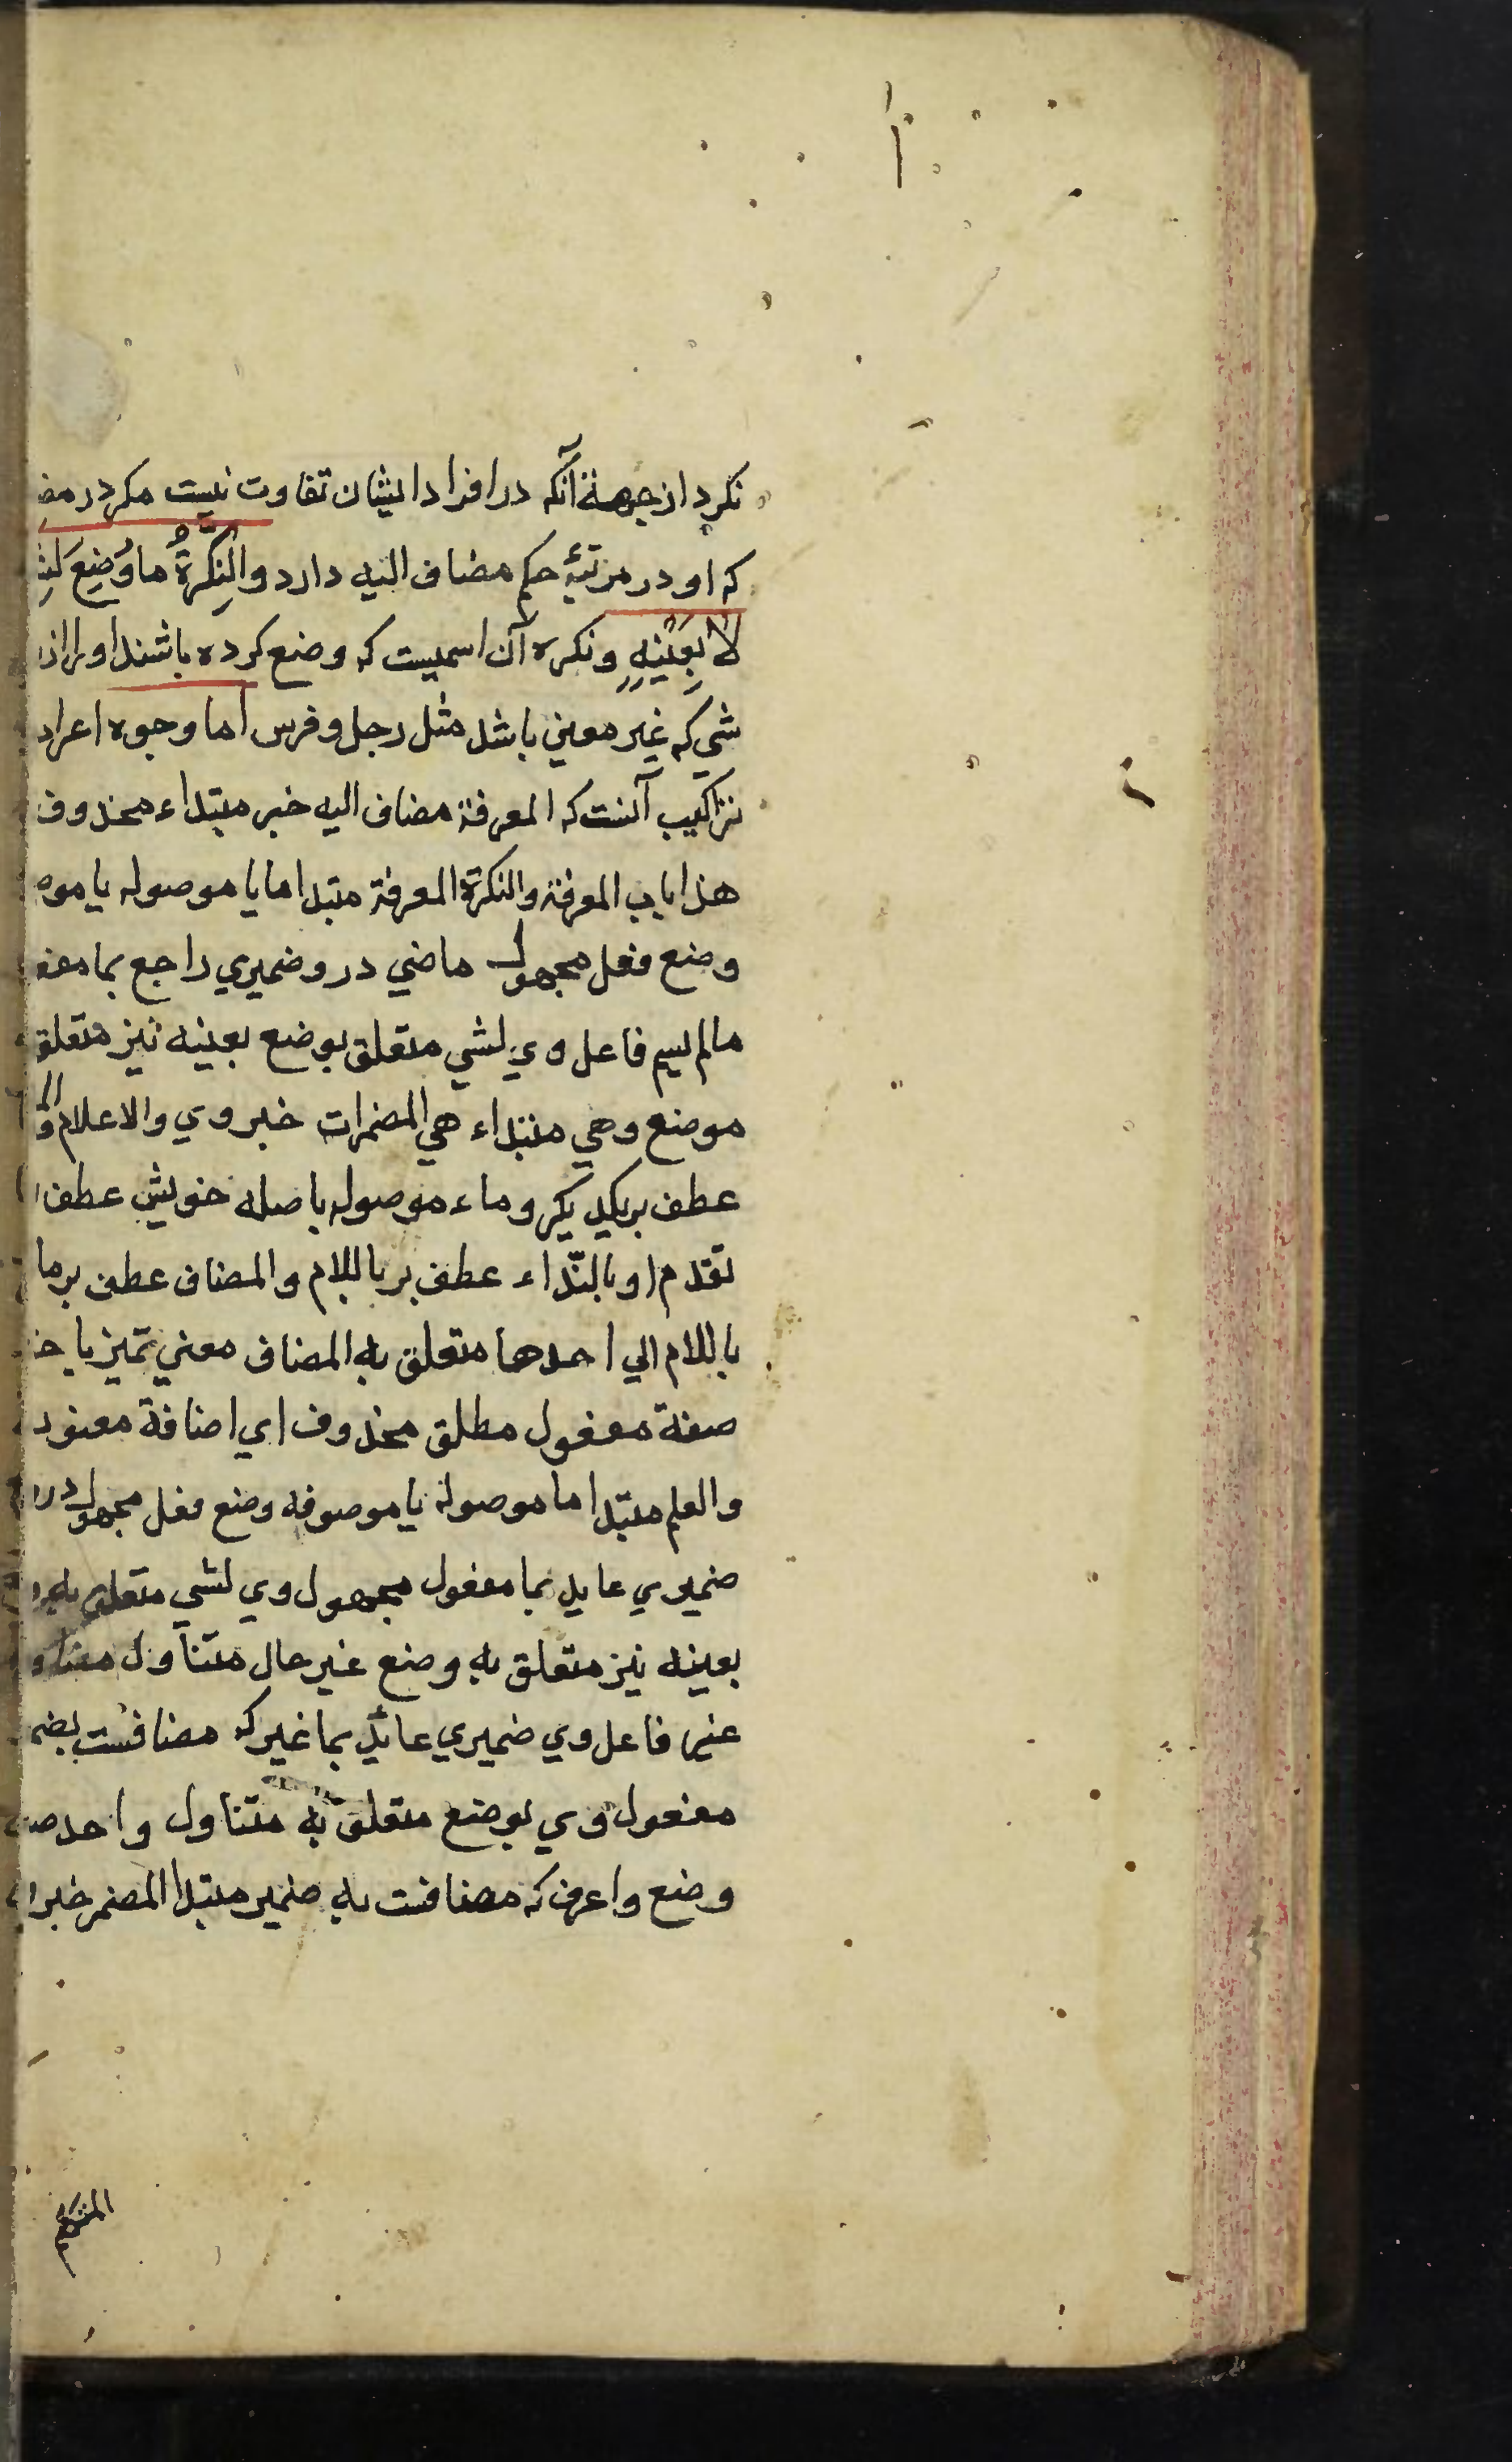 نکرد از جهة آنکه در افراد ایشان تفاوت نیست مکر در مض
که او در مرتبۀ حکم مضاف الیه دارد والنَّكِرَةُ ما وُضِعَ لِشَ
لَا بِعَيْنِهِ ونکره آن اسمیست که وضع کرده باشند او را از
شي که غیر معین باشد مثل رجل و فرس اما وجوه اعراب
تراکیب آنست که المعرفة مضاف الیه خبر مبتداء محذوف
هذا باب المعرفة والنکرة المعرفة مبتدا ما یا موصوله یا موص
وضع فعل مجهول ماضي درو ضمیري راجع بما مفعو
مالم یسم فاعل وي لشي متعلق بوضع بعینه نیز متعلق
موضع وهي مبتداء هي المضمرات خبر وي والاعلام
عطف بر یکدیکر وماء موصوله با صله خویش عطف
تقدم او بالنّداء عطف بر باللام والمضاف عطف بر ما
باللام الي احدها متعلق به المضاف معني تمیز یا
صفة مفعول مطلق محذوف اي اضافة معنو
والعلم مبتدا ما موصولة یا موصوفه وضع فعل مجهول درو
ضمیري عاید بما مفعول مجهول وي لشي متعلق
بعینه نیز متعلق به وضع غیر حال متناول
غیر فاعل وي ضمیري عائد بما غیر که مضافست بضم
مفعول وي بوضع متعلق به متناول واحد
وضع واعرف که مضافست به ضمیر مبتدا المضمر خبر